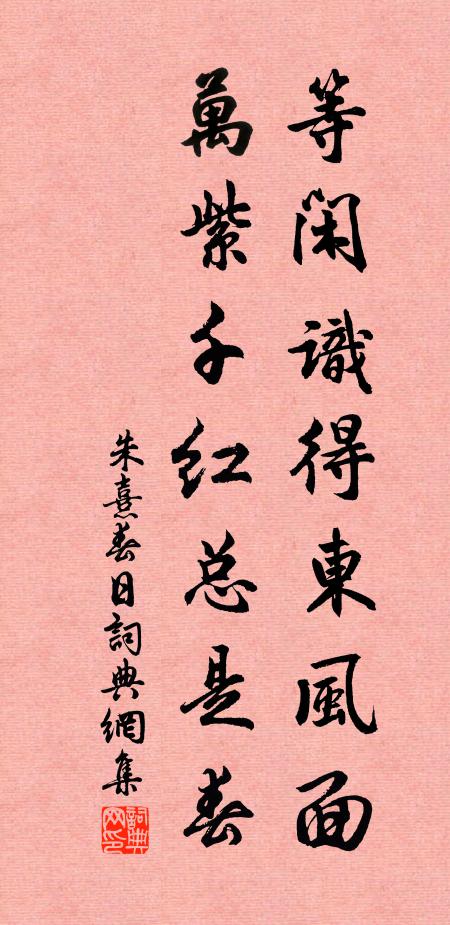 等閑識得東風面
萬紫千红总是春
朱熹春日詞典網集
詞典网印